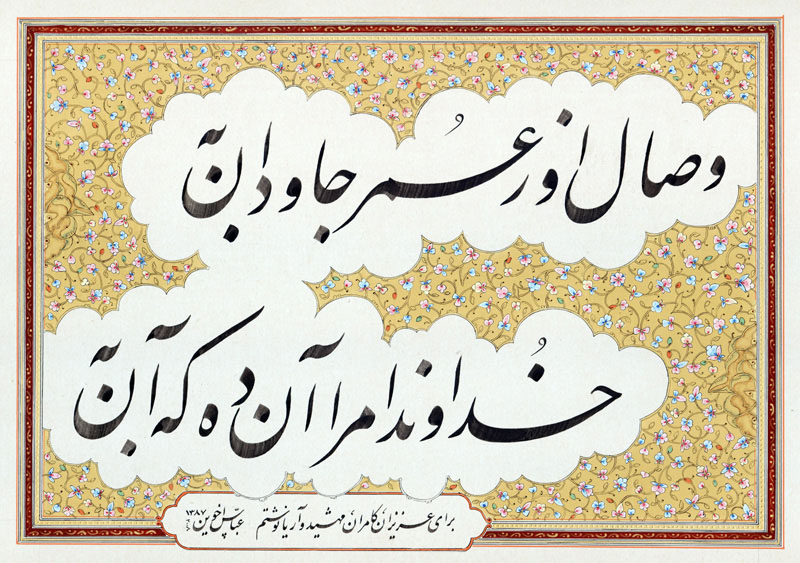 وصال او ز عمر جاودان به
خداوندا مرا آن ده که آن به
برای عزیزان، کامران، مهشید و آریا نوشتم عباس اخوین ۱۳۸۷